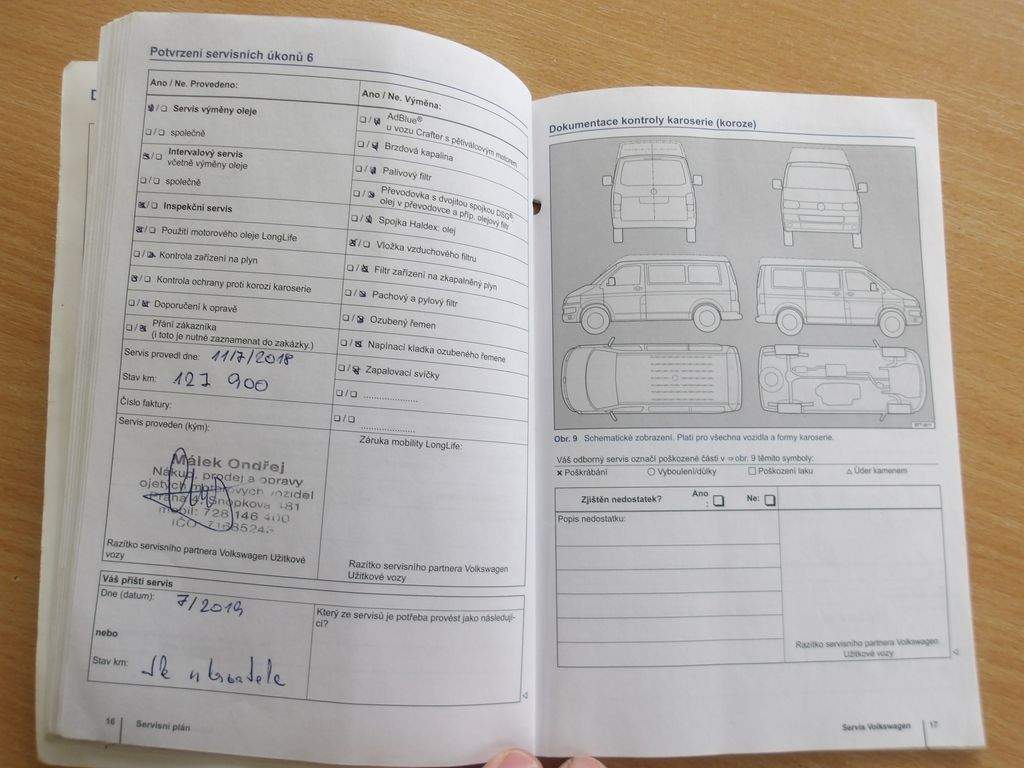 Potvrzení servisních úkonů 6
Ano / Ne. Provedeno:
/ Servis výměny oleje
/ společně
/ Intervalový servis
včetně výměny oleje
/ společně
/ Inspekční servis
/ Použití motorového oleje LongLife
/ Kontrola zařízení na plyn
/ Kontrola ochrany proti korozi karoserie
/ Doporučení k opravě
/ Přání zákazníka
(i toto je nutné zaznamenat do zakázky.)
Servis provedl dne: 11/7/2018
Stav km: 127 900
Číslo faktury:
Servis proveden (kým):
Málek Ondřej
Nákup, prodej a opravy
ojetých motorových vozidel
Praha 4, Šnopkova 481
mobil: 728 146 400
IČO:
Razítko servisního partnera Volkswagen Užitkové
vozy
Ano / Ne. Výměna:
/ AdBlue®
u vozu Crafter s pětiválcovým motorem
/ Brzdová kapalina
/ Palivový filtr
/ Převodovka s dvojitou spojkou DSG®:
olej v převodovce a příp. olejový filtr
/ Spojka Haldex: olej
/ Vložka vzduchového filtru
/ Filtr zařízení na zkapalněný plyn
/ Pachový a pylový filtr
/ Ozubený řemen
/ Napínací kladka ozubeného řemene
/ Zapalovací svíčky
/ ....................
/ ....................
Záruka mobility LongLife:
Razítko servisního partnera Volkswagen
Užitkové vozy
Váš příští servis
Dne (datum): 7/2019
nebo
Stav km:
Který ze servisů je potřeba provést jako následují-
cí?
16 Servisní plán
Dokumentace kontroly karoserie (koroze)
Obr. 9 Schematické zobrazení. Platí pro všechna vozidla a formy karoserie.
Váš odborný servis označí poškozené části v ⇒ obr. 9 těmito symboly:
× Poškrábání ○ Vyboulení/důlky □ Poškození laku △ Úder kamenem
Zjištěn nedostatek? Ano
: Ne:
Popis nedostatku:
Razítko servisního partnera Volkswagen
Užitkové vozy
Servis Volkswagen 17